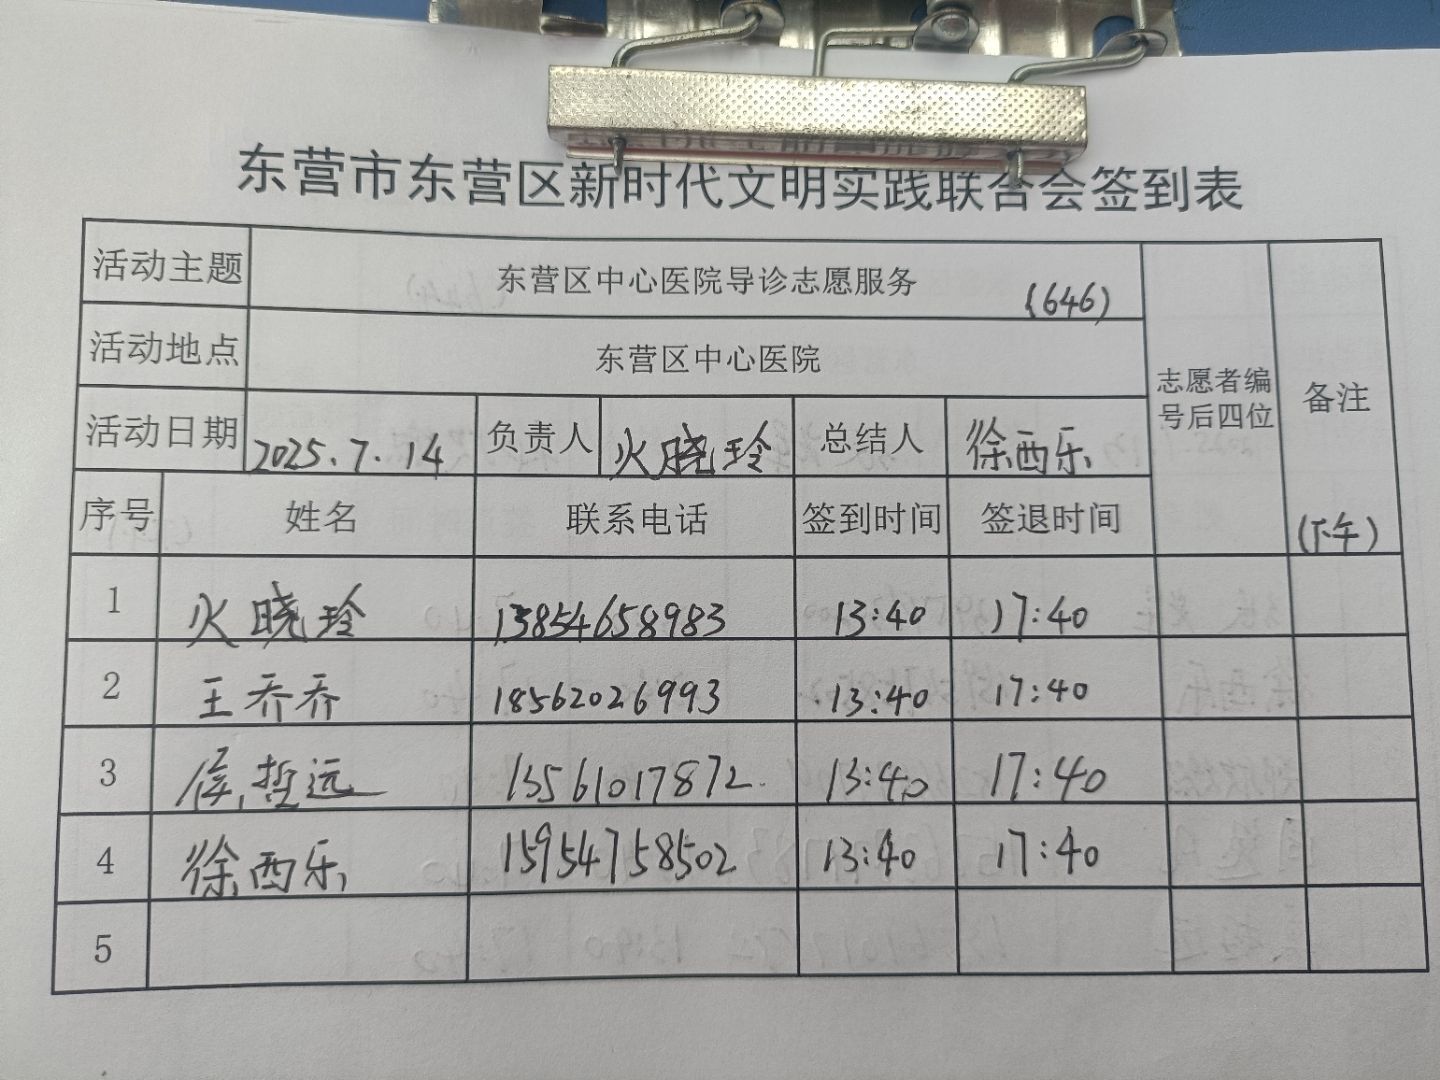 东营市东营区新时代文明实践联合会签到表
活动主题 东营区中心医院导诊志愿服务 (646)
活动地点 东营区中心医院
志愿者编号后四位 备注
活动日期 2025.7.14 负责人 火晓玲 总结人 徐西乐
序号 姓名 联系电话 签到时间 签退时间 (下午)
1 火晓玲 13854658983 13:40 17:40
2 王乔乔 18562026993 13:40 17:40
3 哲远 13561017872 13:40 17:40
4 徐西乐 15954758502 13:40 17:40
5